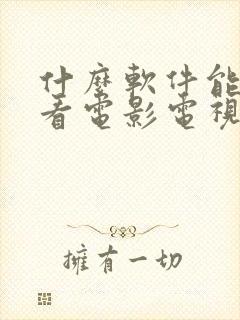 什麼軟件能
看電影電視
擁有一切